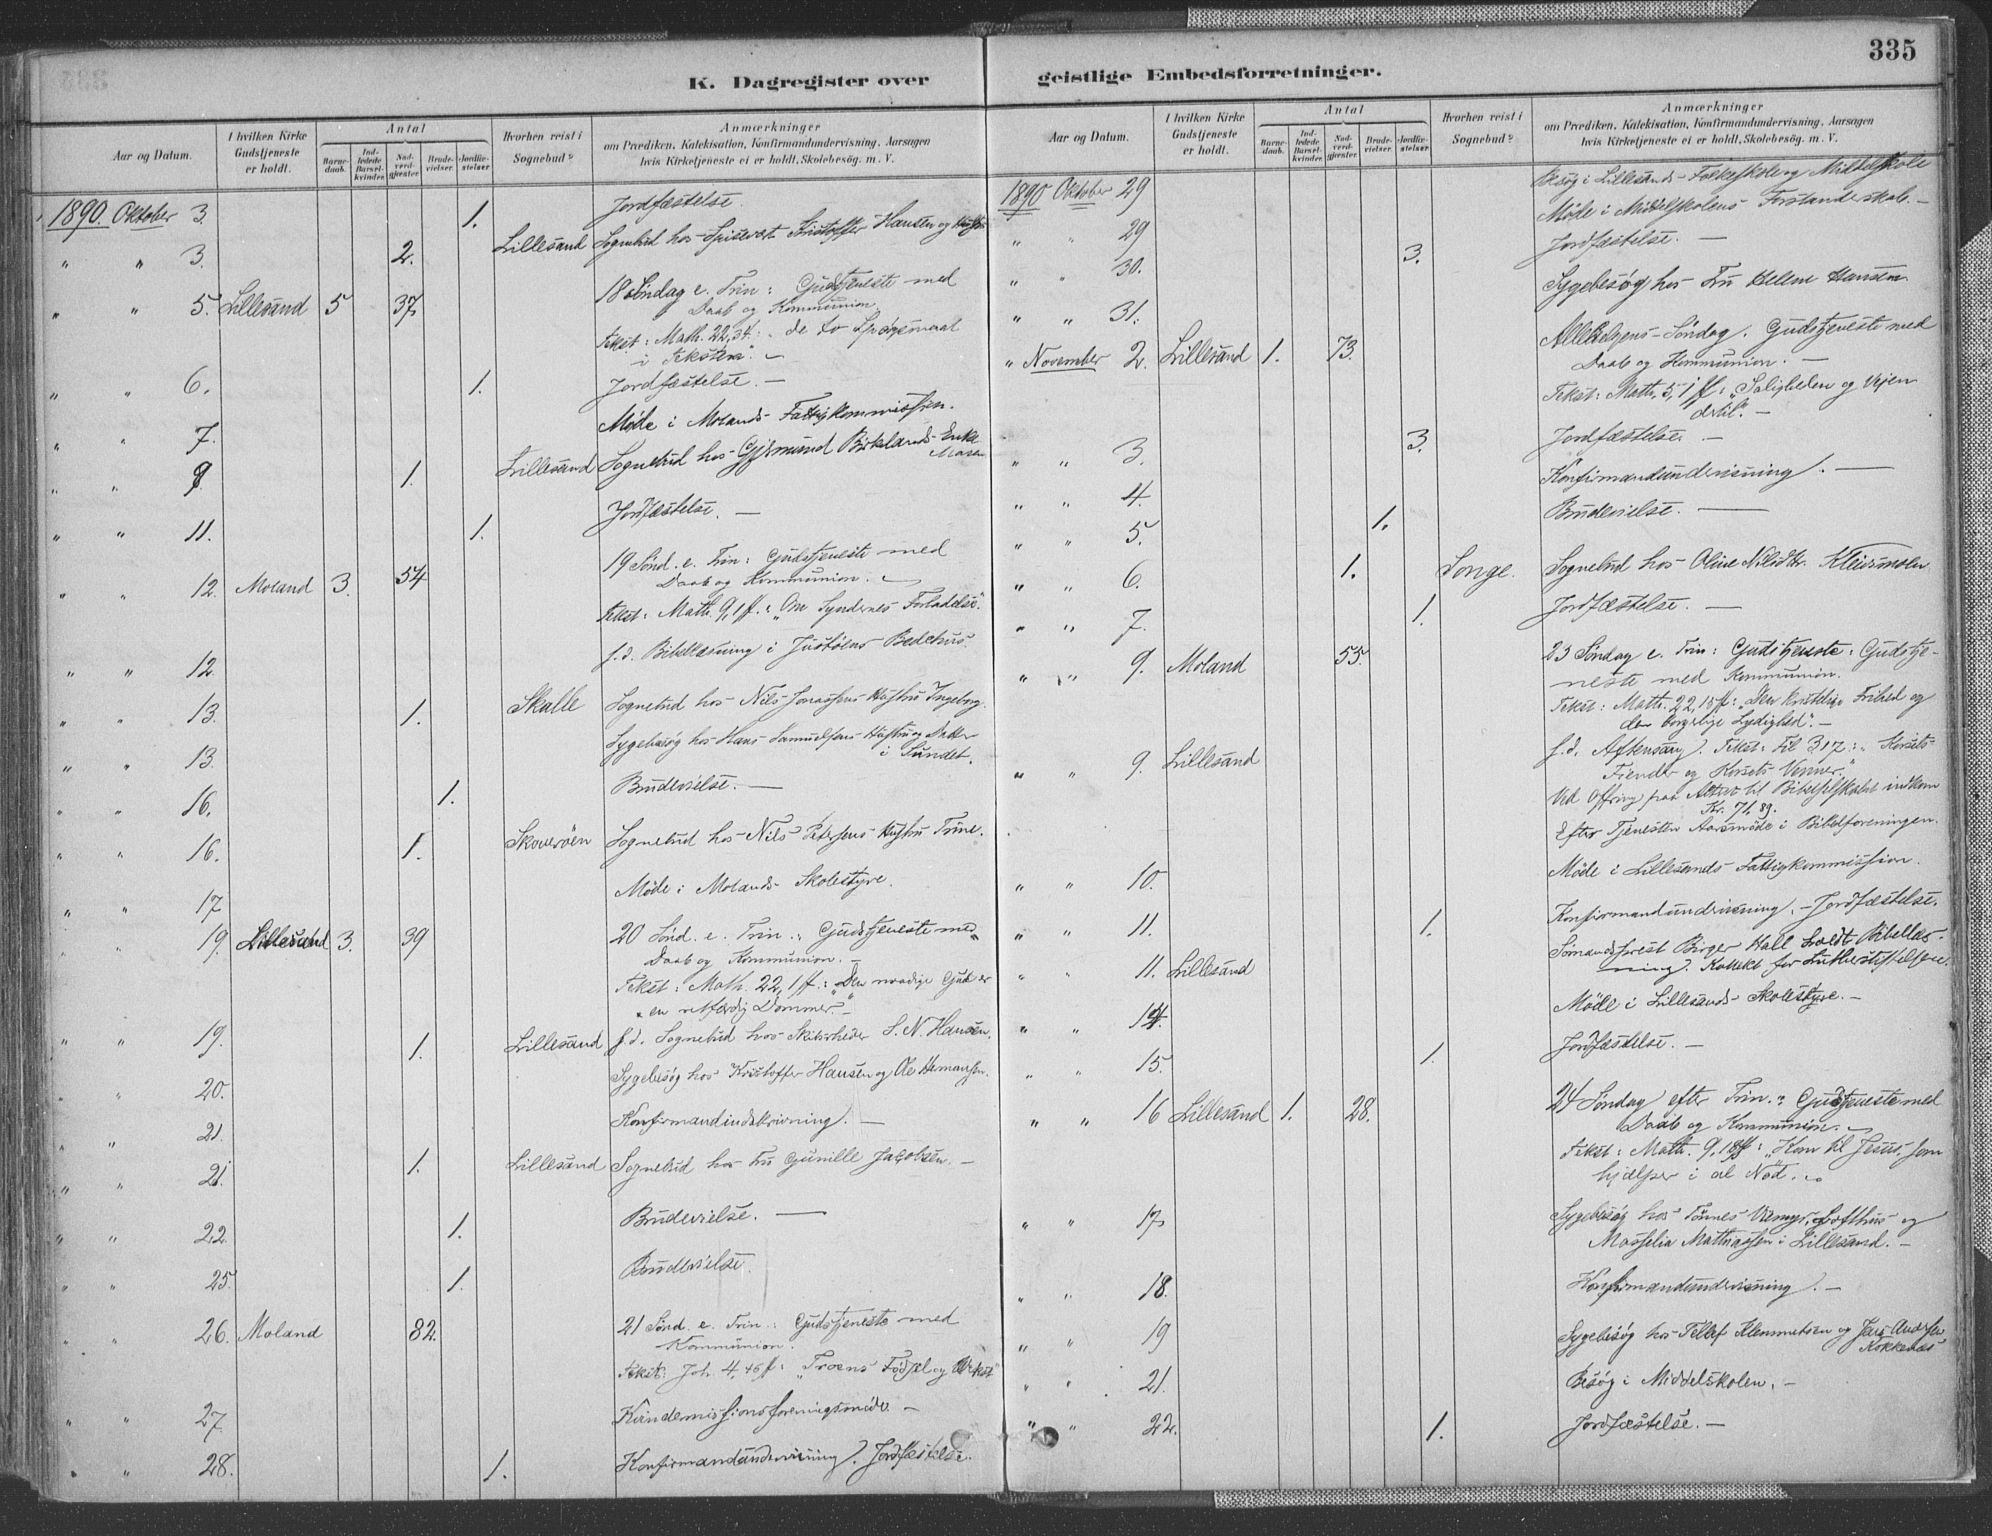 335
K. Dagregister over
geistlige Embedsforretninger.
Aar og Datum.
I hvilken Kirke Gudstjeneste er holdt.
Antal
Barnedaab.
Indledede Barselkvinder.
Nadverdgjester.
Brudevielser.
Jordfæstelser
Hvorhen reist i Sognebud?
Anmærkninger
om Prædiken, Katekisation, Konfirmandundervisning, Aarsagen
hvis Kirketjeneste ei er holdt, Skolebesøg m. V.
1890. Oktober 3. 1. Jordfæstelse.
" " 3. 2. Lillesand Sognebud hos Spisevært Kristoffer Hansen og Hustru
" " 5. Lillesand 5 37. 18 Søndag e. Trin: Gudstjeneste med
Daab og Kommunion.
Tekst: Math. 22,34: de to Spørgsmaal
i Teksten".
" " 6. 1. Jordfæstelse. —
" " 7. Møde i Molands Fattigkommission.
" " 9. 1. Lillesand Sognebud hos Birklands Enke
Maren
" " 11. 1. Jordfæstelse. —
" " 12. Moland 3. 54 19 Sønd. e. Trin: Gudstjeneste med
Daab og Kommunion.
Tekst: Math. 9,1 ff.: "Om Syndernes Forladelse".
" " 12. s. d. Bibellæsning i Justøens Bedehus.
" " 13. 1. Skalle Sognebud hos Nils Jonassens Hustru Ingeborg.
" " 13. Sygebesøg hos Hans Samuelsens Hustru og Datter
i Sundet.
" " 16. 1. Brudevielse. —
" " 16. 1. Skouerøen Sognebud hos Nils Petersens Hustru Trine.
" " 17 Møde i Molands Skolestyre.
" 19. Lillesand 3. 39 20 Sønd. e. Trin.: Gudstjeneste med
Daab og Kommunion. —
Tekst: Math. 22, 1 ff.: "Den naadige Gud er
en retfærdig Dommer" —
" " 19. 1. Lillesand s. d. Sognebud hos Skibsrheder S. N. Hansen.
" " 20. Sygebesøg hos Kristoffer Hansen og Ole Hermansen.
" " 21. Konfirmandindskrivning. —
" " 21. 1. Lillesand Sognebud hos Fru Gunille Jacobsen. —
" " 22. 1. Brudevielse. —
" " 25. 1. Brudevielse.
" " 26. Moland 82. 21 Sønd. e. Trin: Gudstjeneste med
Kommunion.
Tekst: Joh. 4, 46 ff: "Troens Fødsel og Vækst"
" " 27. Kvindemissionsforeningsmøde. —
" " 28. 1. Konfirmandundervisning. Jordfæstelse.
Aar og Datum.
I hvilken Kirke Gudstjeneste er holdt.
Antal
Barnedaab.
Indledede Barselkvinder.
Nadverdgjester.
Brudevielser.
Jordfæstelser
Hvorhen reist i Sognebud?
Anmærkninger
om Prædiken, Katekisation, Konfirmandundervisning, Aarsagen
hvis Kirketjeneste ei er holdt, Skolebesøg m. V.
1890 Oktober 29 Besøg i Lillesands Folkeskole og Middelskole
" " 29 Møde i Middelskolens Forstanderskab. —
" " 30. 3. Jordfæstelse. —
" " 31. Sygebesøg hos Fru Helene Hansen.
" November 2. Lillesand 1. 73. Allehelgens-Søndag. Gudstjeneste med
Daab og Kommunion. —
Tekst: Math. 5, 1 ff: "Saligheden og Vejen
dertil". —
" " 3. 3. Jordfæstelse. —
" " 4. Konfirmandundervisning. —
" " 5. 1. Brudevielse. —
" " 6. 1. Songe. Sognebud hos Oline Nilsdtr. Kleivsmolen
" " 7. 1. Jordfæstelse. —
" " 9. Moland 55. 23 Søndag e. Trin: Gudstjeneste: Gudstje-
neste med Kommunion.
Tekst: Math. 22, 15 ff: "Den kristelige Frihed og
den borgerlige Lydighed". —
" " 9. Lillesand s. d. Aftensang. Tekst: Fil 3 17: "Korsets
Fiender og Korsets Venner."
Ved Offring paa Alteret til Bibelselskabet indkom
Kr. 71,89.
Efter Tjenesten Aarsmøde i Bibelforeningen.
" " 10. Møde i Lillesands Fattigkommission.
" " 11. 1. Konfirmandundervisning. — Jordfæstelse.
" " 11. Lillesand Sømandsprest Birger Hall holdt Bibellæs-
ning. Kollekt for Lutherstiftelsen.
" " 14. Møde i Lillesands Skolestyre. —
" " 15. 1. Jordfæstelse. —
" " 16 Lillesand 1. 28. 24 Søndag efter Trin.: Gudstjeneste med
Daab og Kommunion.
Tekst: Math. 9, 18 ff: "Kom til Jesus, som
hjælper i al Nød.
" " 17. Sygebesøg hos Tønnes Lofthus og
Mathiassen i Lillesand. —
" " 18. Konfirmandundervisning. —
" " 19 Sygebesøg hos Tellef Klemmetsen og Jens Andersen
Kokkenes
" " 21. Besøg i Middelskolen. —
" " 22. 1. Jordfæstelse. —